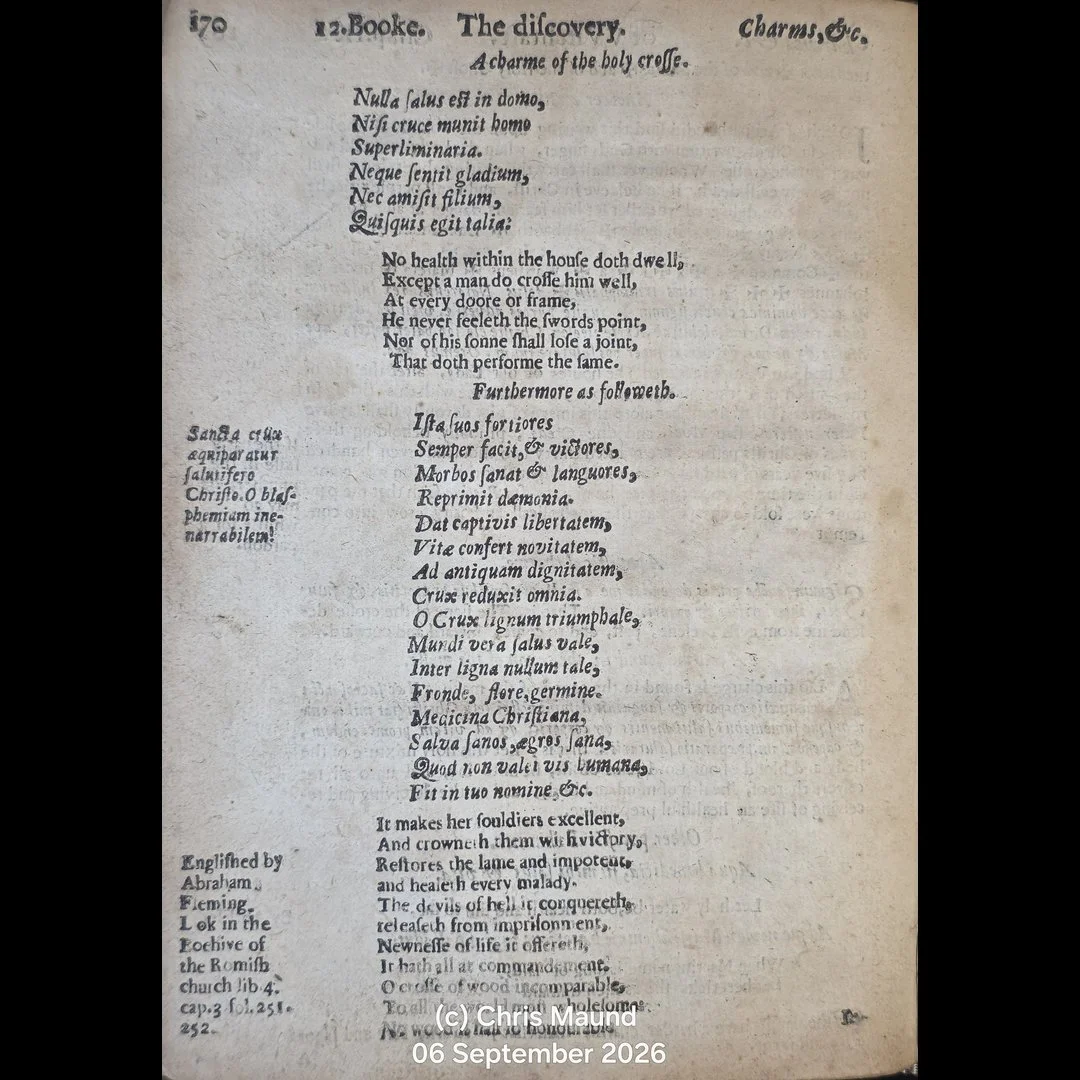 170 12.Booke. The diſcovery. Charms,&c.
A charme of the holy croſſe.
Nulla ſalus eſt in domo,
Niſi cruce munit homo
Superliminaria.
Neque ſentit gladium,
Nec amiſit filium,
Quiſquis egit talia:
No health within the houſe doth dwell,
Except a man do croſſe him well,
At every doore or frame,
He never feeleth the ſwords point,
Nor of his ſonne ſhall loſe a joint,
That doth performe the ſame.
Furthermore as followeth.
Iſta ſuos fortiores
Semper facit,& victores,
Morbos ſanat & languores,
Reprimit dæmonia.
Dat captivis libertatem,
Vitæ confert novitatem,
Ad antiquam dignitatem,
Crux reduxit omnia.
O Crux lignum triumphale,
Mundi vera ſalus vale,
Inter ligna nullum tale,
Fronde, flore,germine.
Medicina Chriſtiana,
Salva ſanos,ægros ſana,
Quod non valet vis humana,
Fit in tuo nomine,&c.
Sancta crux
æquiparatur
ſalutifero
Chriſto.O blaſ-
phemiam ine-
narrabilem!
It makes her ſouldiers excellent,
And crowneth them with victory,
Reſtores the lame and impotent,
and healeth every malady.
The devils of hell it conquereth,
releaſeth from impriſonment,
Newneſſe of life it offereth,
It hath all at commandement.
O croſſe of wood incomparable,
To all the world moſt wholeſome:
No wood is half ſo honourable
Engliſhed by
Abraham
Fleming.
Lok in the
Beehive of
the Romiſh
church lib 4.
cap.3 fol.251.
252.
(c) Chris Maund
06 September 2026